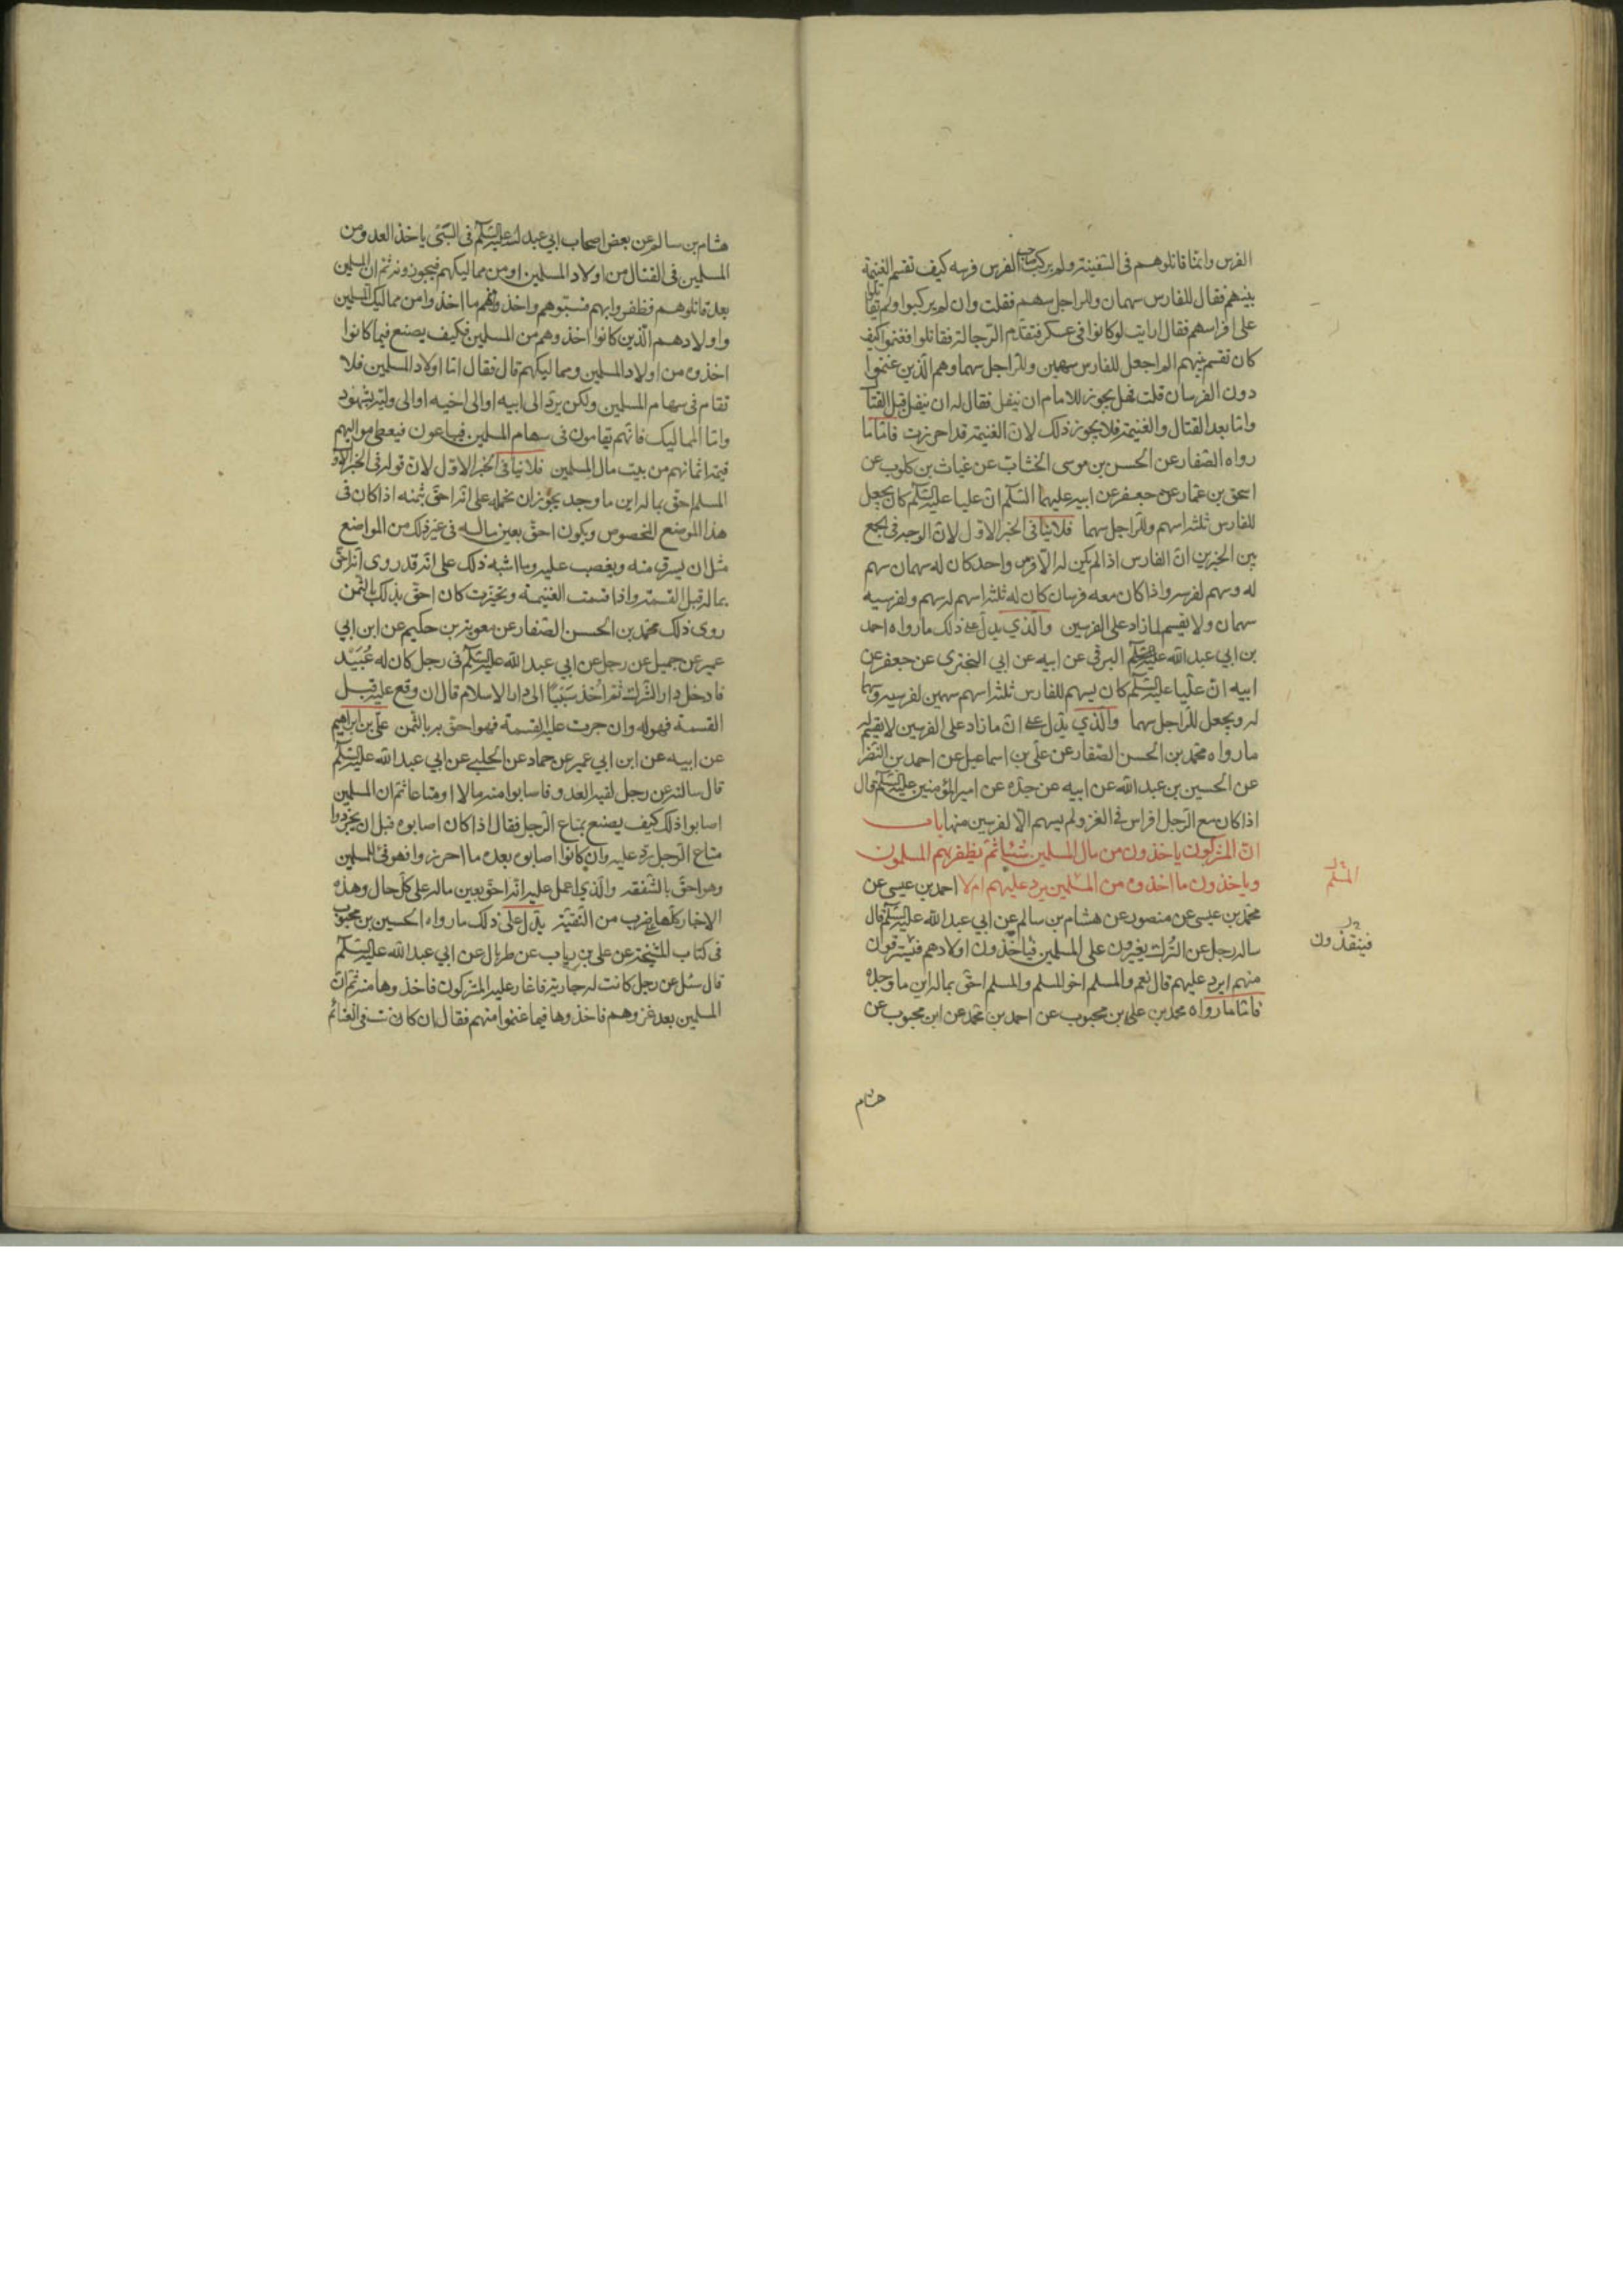 الفرس وانما قاتلوهم فى السفينة ولم يركب صاحب الفرس فرسه كيف تقسم الغنيمة
بينهم فقال للفارس سهمان وللراجل سهم فقلت وان لم يركبوا ولم يقاتلوا
على افراسهم فقال ارايت لو كانوا فى عسكر فتقدم الرجالة فقاتلوا فغنموا كيف
كان تقسم بينهم الم اجعل للفارس سهمين وللراجل سهما وهم الذين غنموا
دون الفرسان قلت فهل يجوز للامام ان ينفل فقال له ان ينفل قبل القتال
واما بعد القتال والغنيمة فلا يجوز ذلك لان الغنيمة قد احرزت فاما ما
رواه الصفار عن الحسن بن موسى الخشاب عن غياث بن كلوب عن
اسحق بن عمار عن جعفر عن ابيه عليهما السلام ان عليا عليه السلام كان يجعل
للفارس ثلثة اسهم وللراجل سهما فلا ينافى الخبر الاول لان الوجه فى الجمع
بين الخبرين ان الفارس اذا لم يكن له الا فرس واحد كان له سهمان سهم
له وسهم لفرسه واذا كان معه فرسان كان له ثلثة اسهم له سهم ولفرسيه
سهمان ولا يقسم لما زاد على الفرسين والذي يدل على ذلك ما رواه احمد
بن ابي عبد الله البرقى عن ابيه عن ابي البخترى عن جعفر عن
ابيه ان عليا عليه السلام كان يسهم للفارس ثلثة اسهم سهمين لفرسيه وسهما
له ويجعل للراجل سهما والذي يدل على ان ما زاد على الفرسين لا يقسم له
ما رواه محمد بن الحسن الصفار عن على بن اسماعيل عن احمد بن النضر
عن الحسين بن عبد الله عن ابيه عن جده عن امير المؤمنين عليه السلام قال
اذا كان مع الرجل افراس فى الغزو لم يسهم الا لفرسين منها باب
ان المشركون ياخذون من مال المسلمين شيئا ثم يظفر بهم المسلمون
وياخذون ما اخذوه من المسلمين يرد عليهم ام لا احمد بن عيسى عن
محمد بن عيسى عن منصور عن هشام بن سالم عن ابي عبد الله عليه السلام قال
ساله رجل عن الترك يغيرون على المسلمين فياخذون اولادهم فيسترقون
منهم ايرد عليهم قال نعم والمسلم اخو المسلم والمسلم احق بماله اين ما وجده
فاما ما رواه محمد بن على بن محبوب عن احمد بن محمد عن ابن محبوب عن
هشام
المسلم
فينقذون
هشام بن سالم عن بعض اصحاب ابي عبد الله عليه السلام فى السبى ياخذ العدو من
المسلمين فى القتال من اولاد المسلمين او من مماليكهم فيحوزونه ثم ان المسلمين
بعد قاتلوهم فظفروا بهم فسبوهم واخذوا منهم ما اخذوا من مماليك المسلمين
واولادهم الذين كانوا اخذوهم من المسلمين فكيف يصنع فيما كانوا
اخذوه من اولاد المسلمين ومماليكهم قال فقال اما اولاد المسلمين فلا
تقام فى سهام المسلمين ولكن يرد الى ابيه او الى اخيه او الى وليه بشهود
واما المماليك فانهم يقامون فى سهام المسلمين فيباعون فيعطى مواليهم
قيمة اثمانهم من بيت مال المسلمين فلا ينافى الخبر الاول لان قوله فى الخبر الاول
المسلم احق بماله اين ما وجد يجوز ان نحمله على انه احق بثمنه اذا كان فى
هذا الموضع المخصوص ويكون احق بعين ماله فى غير ذلك من المواضع
مثل ان يسرق منه ويغصب عليه وما اشبه ذلك على انه قد روى انه احق
بماله قبل القسمة واذا قسمت الغنيمة وتحيزت كان احق بذلك بالثمن
روى ذلك محمد بن الحسن الصفار عن معوية بن حكيم عن ابن ابي
عمير عن جميل عن رجل عن ابي عبد الله عليه السلام فى رجل كان له عبيد
فادخل دار الشرك ثم اخذ سبيا الى دار الاسلام قال ان وقع عليه قبل
القسمة فهو له وان جرت عليه القسمة فهو احق به بالثمن على بن ابراهيم
عن ابيه عن ابن ابي عمير عن حماد عن الحلبى عن ابي عبد الله عليه السلام
قال سالته عن رجل لقيه العدو فاصابوا منه مالا او متاعا ثم ان المسلمين
اصابوا ذلك كيف يصنع بمتاع الرجل فقال اذا كان اصابوه قبل ان يحوزوا
متاع الرجل رد عليه وان كانوا اصابوه بعد ما احرزوا فهو فئ للمسلمين
وهو احق بالشفعة والذي اعمل عليه انه احق بعين ماله على كل حال وهذه
الاخبار كلها على ضرب من التقية يدل على ذلك ما رواه الحسين بن محبوب
فى كتاب المشيخة عن على بن رياب عن طربال عن ابي عبد الله عليه السلام
قال سئل عن رجل كانت له جارية فاغار عليه المشركون فاخذوها منه ثم ان
المسلمين بعد غزوهم فاخذوها فيما غنموا منهم فقال ان كانت فى الغنائم